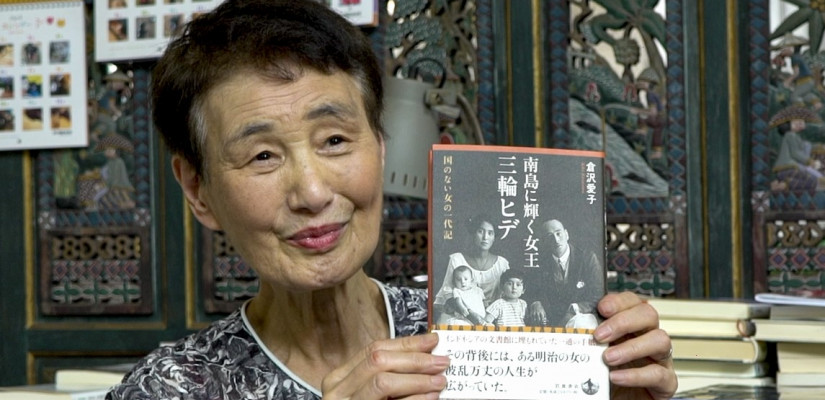 倉沢愛子
南島に輝く女王
三輪ヒデ
国のない女の一代記
インドネシアの文書館に埋もれていた一通の手紙
その背後には、ある明治の女の
波乱万丈の人生が
広がっていた。
岩波書店